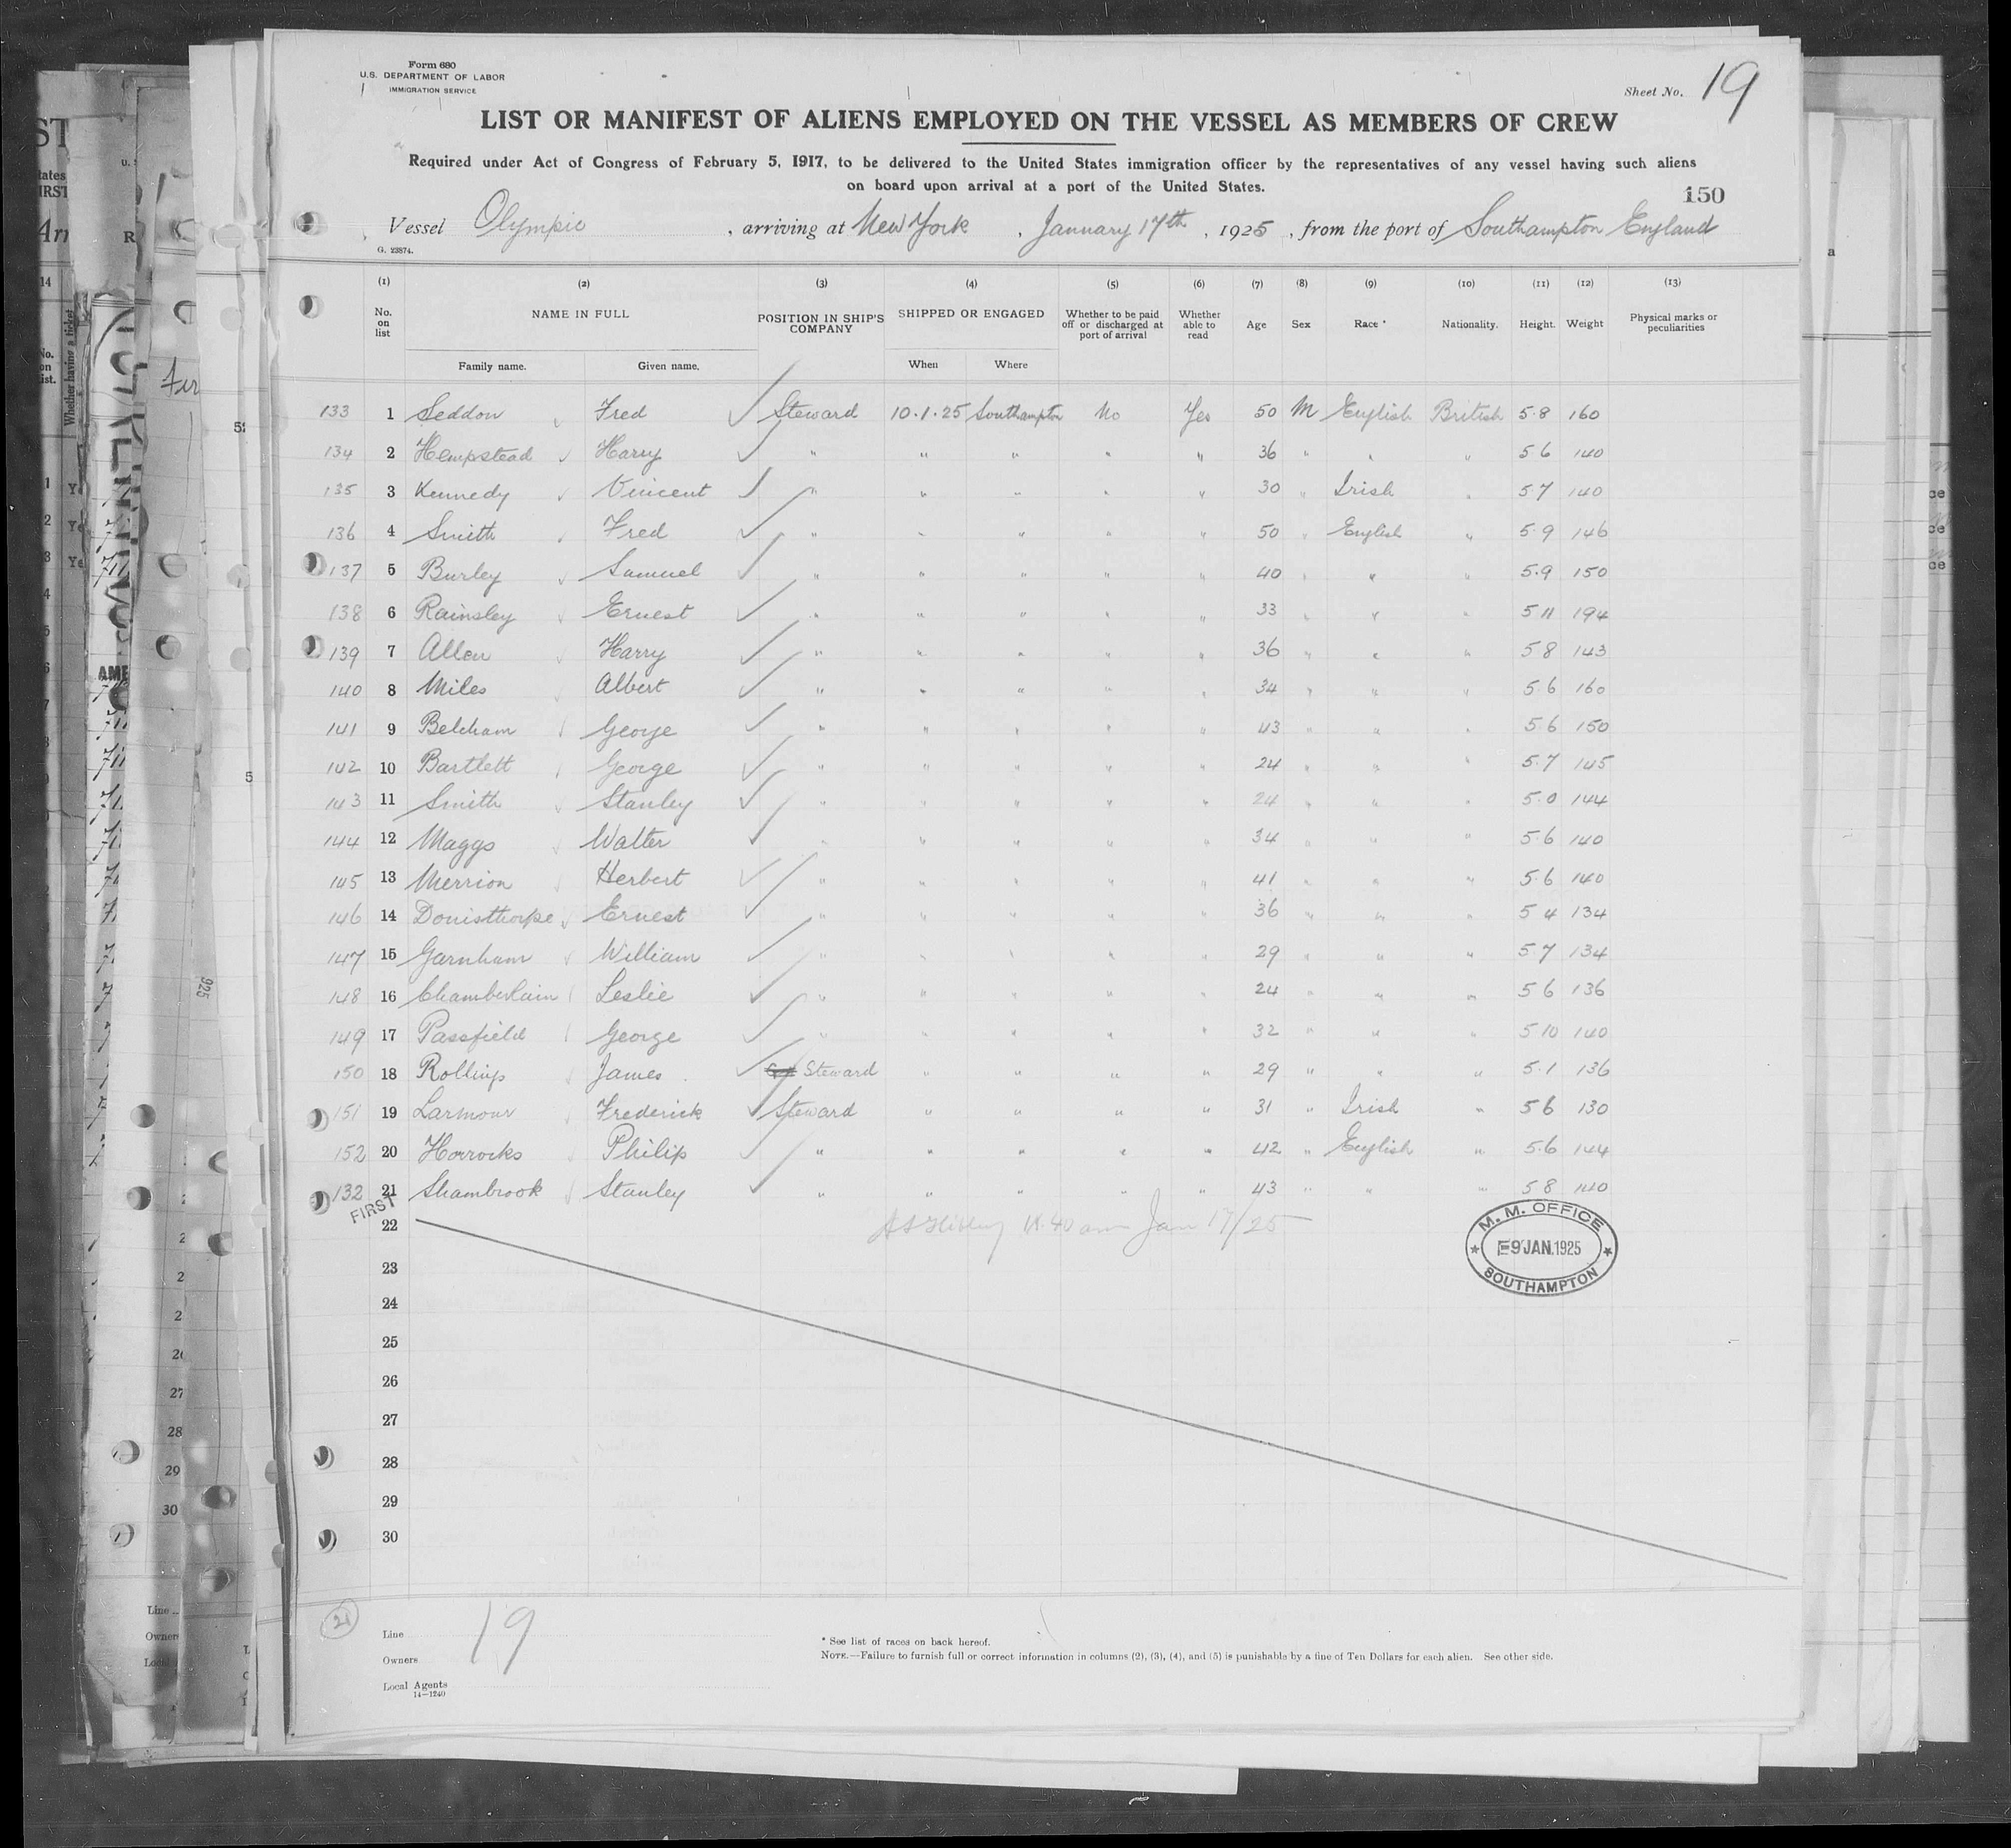 Form 680
U.S. DEPARTMENT OF LABOR
IMMIGRATION SERVICE
Sheet No. 19
LIST OR MANIFEST OF ALIENS EMPLOYED ON THE VESSEL AS MEMBERS OF CREW
Required under Act of Congress of February 5, 1917, to be delivered to the United States immigration officer by the representatives of any vessel having such aliens
on board upon arrival at a port of the United States.
150
Vessel Olympic, arriving at New York, January 17th, 1925, from the port of Southampton England
G. 23874.
(1) (2) (3) (4) (5) (6) (7) (8) (9) (10) (11) (12) (13)
No. on list NAME IN FULL POSITION IN SHIP'S COMPANY SHIPPED OR ENGAGED Whether to be paid off or discharged at port of arrival Whether able to read Age Sex Race * Nationality. Height. Weight Physical marks or peculiarities
Family name. Given name. When Where
133 1 Seddon Fred Steward 10.1.25 Southampton No Yes 50 M English British 5.8 160
134 2 Hempstead Harry " " " " " 36 " " " 5 6 140
135 3 Kennedy Vincent " " " " " 30 " Irish " 5 7 140
136 4 Smith Fred " " " " " 50 " English " 5.9 146
137 5 Burley Samuel " " " " " 40 " " " 5.9 150
138 6 Rainsley Ernest " " " " " 33 " " " 5 11 194
139 7 Allen Harry " " " " " 36 " " " 5 8 143
140 8 Miles Albert " " " " " 34 " " " 5.6 160
141 9 Belcham George " " " " " 43 " " " 5.6 150
142 10 Bartlett George " " " " " 24 " " " 5.7 145
143 11 Smith Stanley " " " " " 24 " " " 5.0 144
144 12 Maggs Walter " " " " " 34 " " " 5.6 140
145 13 Merrion Herbert " " " " " 41 " " " 5.6 140
146 14 Donisthorpe Ernest " " " " " 36 " " " 5 4 134
147 15 Garnham William " " " " " 29 " " " 5.7 134
148 16 Chamberlain Leslie " " " " " 24 " " " 5 6 136
149 17 Passfield George " " " " " 32 " " " 5.10 140
150 18 Rollings James Steward " " " " 29 " " " 5.1 136
151 19 Larmour Frederick Steward " " " " 31 " Irish " 5 6 130
152 20 Horrocks Philip " " " " " 42 " English " 5.6 144
132 21 Shambrook Stanley " " " " " 43 " " " 5 8 140
FIRST
22 am Jan 17/25
M. M. OFFICE
9 JAN. 1925
SOUTHAMPTON
23
24
25
26
27
28
29
30
21
Line
19
Owners
Local Agents
14—1240
* See list of races on back hereof.
NOTE.—Failure to furnish full or correct information in columns (2), (3), (4), and (5) is punishable by a fine of Ten Dollars for each alien. See other side.